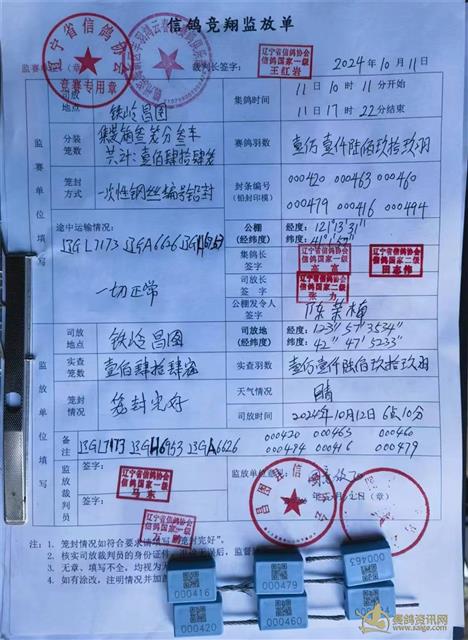 信鸽竞翔监放单
辽宁省信鸽协会
竞赛专用章
裁判长签字：
辽宁省信鸽协会
信鸽国家一级
王红岩
2024年10月11日
司放地点
铁岭昌图
集鸽时间
11日10时11分开始
11日17时22分结束
分装笼数
共计：壹佰肆拾肆笼
赛鸽羽数
壹万壹仟陆佰玖拾玖羽
笼封方式
一次性钢丝编号铅封
封条编号
(铅封印模)
000420 000463 000460
000479 000416 000494
监赛单位填写
途中运输情况：
一切正常
公棚
(经纬度)
经度：121°13′31″
集鸽长签字
辽宁省信鸽协会
信鸽国家一级
辽宁省信鸽协会
信鸽国家二级
田志伟
司放长签字
辽宁省信鸽协会
信鸽国家二级
张力
公棚发令人签字
陈荣梅
监放单位填写
司放地点
铁岭昌图
司放地
(经纬度)
经度：123° 57′ 3534″
纬度：42° 47′ 5233″
实查笼数
壹佰肆拾肆笼
实查羽数
壹万壹仟陆佰玖拾玖羽
笼封情况
笼封完好
天气情况
晴
司放时间
2024年10月12日6时10分
备注
000420 000465 000460
000494 000416 000479
监放裁判员
签字：
辽宁省信鸽协会
信鸽国家一级
马东
签字：
监放单位意见：
(章)
注：1. 笼封情况如符合要求请填写“笼封完好”。
2. 核实司放裁判员的身份证件
3. 无章、填写不全，均视为无
4. 如有涂改，注明情况并加盖
000416
000479
000463
000420
000460
赛鸽资讯网
www.saige.com